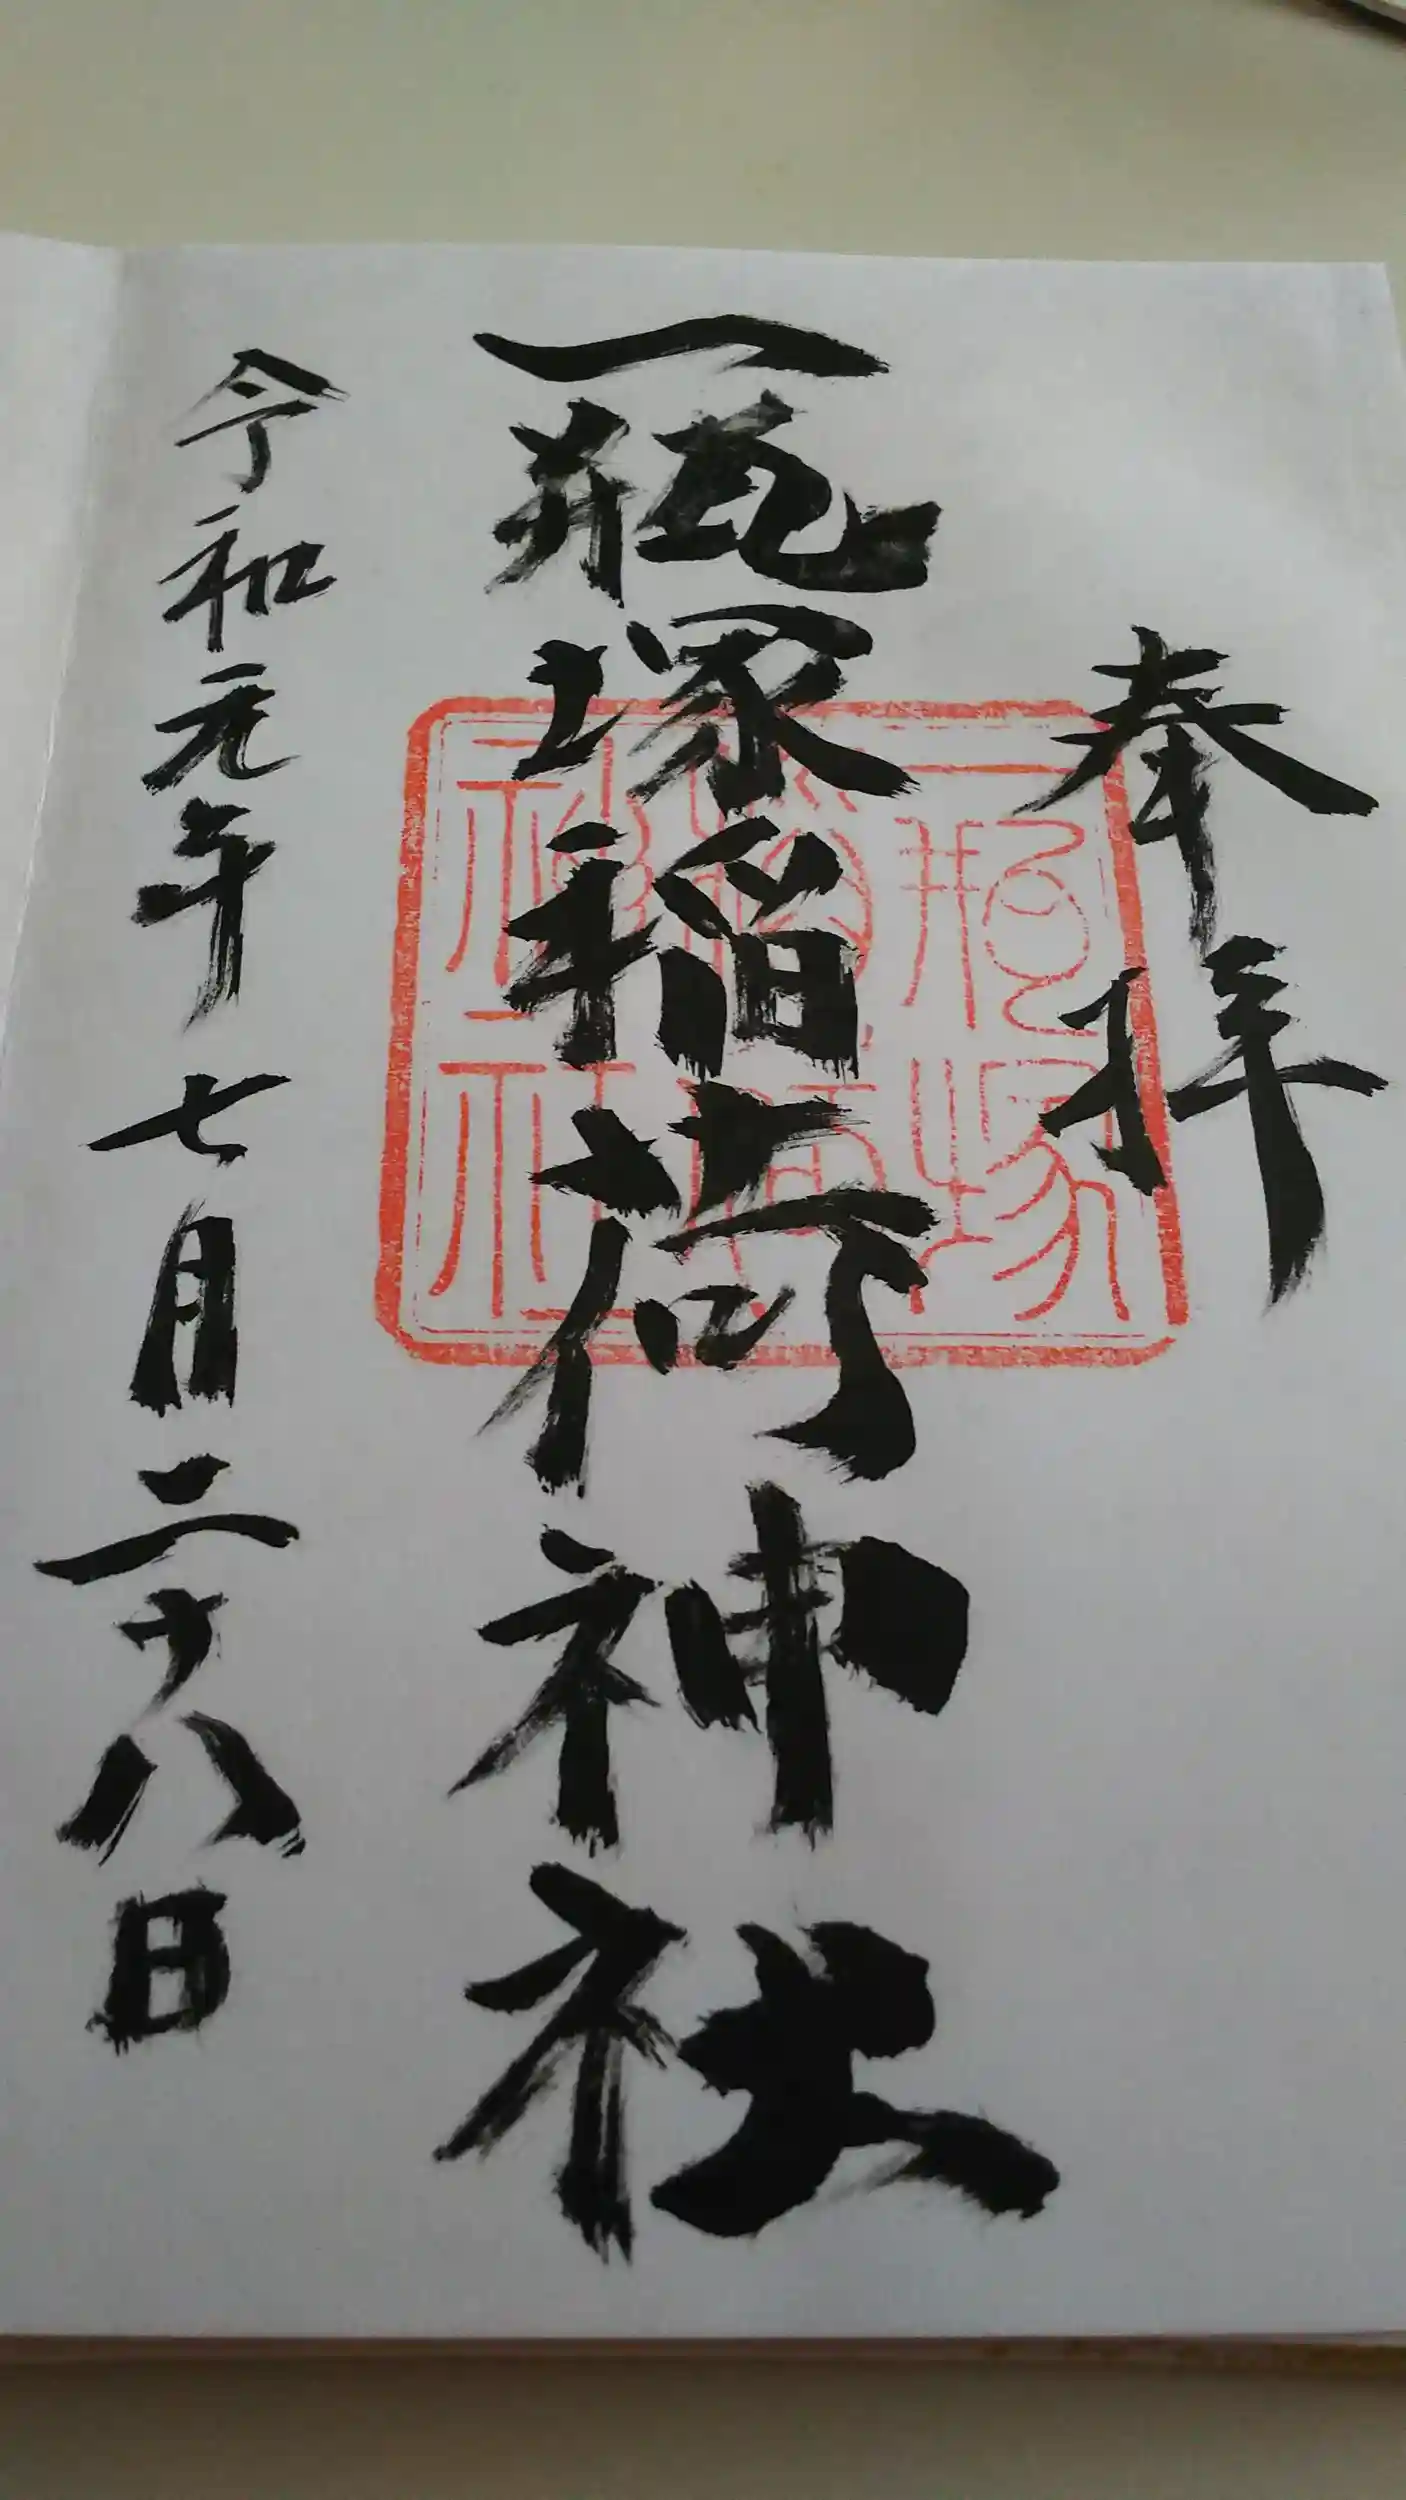 奉拝
一瓶塚稲荷神社
一瓶塚稲荷神社
令和元年七月二十八日